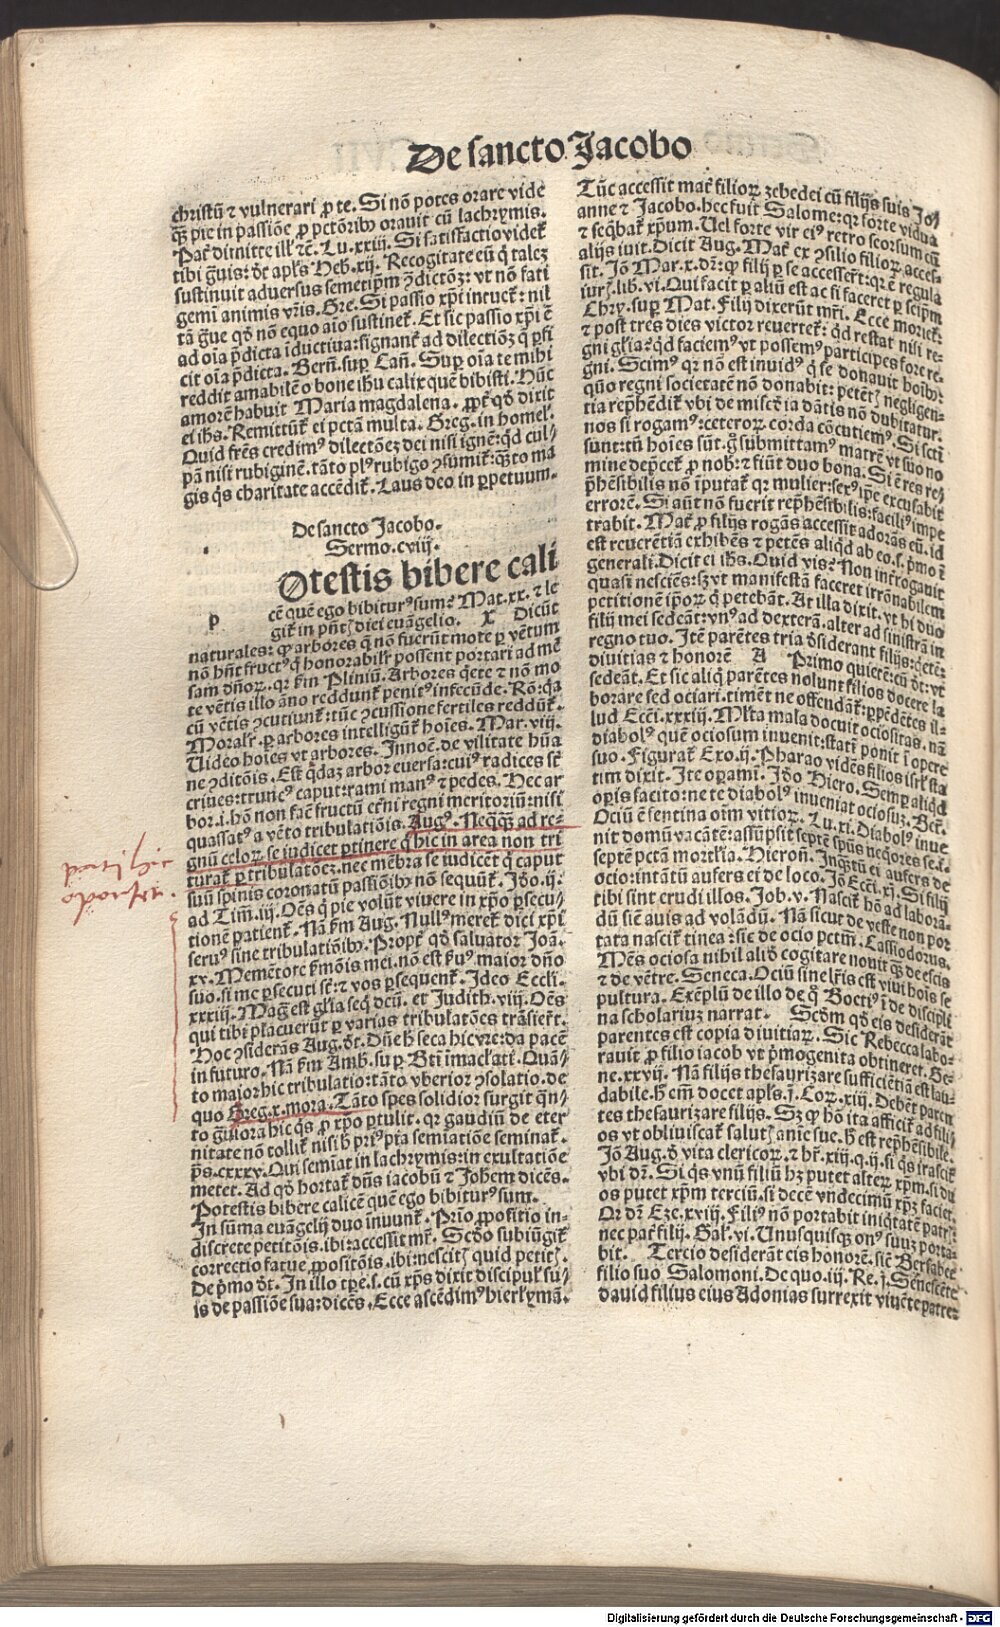 De sancto Jacobo
christū ⁊ vulnerari ꝓ te. Si nō potes orare vide
qꝫ pie in passiōe ꝓ pctōribꝰ orauit cū lachrymis.
Pat̄ dimitte ill̄ ⁊c̄. Lu. xxiij. Si satisfactio videt᷑
tibi gͣuis: dt̄ apl̓s Heb. xij. Recogitate eū q̇ talez
sustinuit aduersus semetip̄m ꝯdictōꝫ: vt nō fati
gemī animis vr̄is. Gre. Si passio xp̄i intuet᷑: nil
tā gͣue qd̓ nō equo aīo sustinet᷑. Et sic passio xp̄i ē
ad oīa p̄dicta īductiua: signant᷑ ad dilectiōꝫ q̄ ꝑfi
cit oīa p̄dicta. Bern̄. suꝑ Can̄. Suꝑ oīa te mihi
reddit amabilē o bone ih̓u calix quē bibisti. Hūc
amorē habuit Maria magdalena. ꝓpt̄ qd̓ dixit
ei ih̓s. Remittūt᷑ ei pctā multa. Greg. in homel̓.
Quid fr̄es credimꝰ dilectōeꝫ dei nisi ignē: q̇d cul⸗
pā nisi rubiginē. tāto plꝰ rubigo ꝯsumit᷑: qͣꝫto ma
gis q̇s charitate accēdit᷑. Laus deo in ꝑpetuum.
De sancto Jacobo.
Sermo. cviij.
Otestis bibere cali
p
cē quē ego bibiturꝰ sum? Mat. xx. ⁊ le
git᷑ in pn̄tꝭ diei euāgelio. X Dicūt
naturales: ꝙ arbores q̄ nō fuerūt mote ꝑ vētum
nō hn̄t fructꝰ q̇ honorabilr̄ possent portari ad mē
sam dn̄oꝝ. qr km̄ Pliniū. Arbores q̄ete ⁊ nō mo
te vētis illo āno reddunt᷑ penitꝰ infecūde. Rō: qꝛ
cū vētis ꝯcutiunt᷑: tūc ꝯcussione fertiles reddūt᷑.
Moralr̄. ꝑ arbores intelligūt᷑ hoīes. Mar. viij.
Uideo hoīes vt arbores. Innoc̄. de vilitate hūa
ne ꝯditōis. Est q̇daꝫ arbor euersa: cuiꝰ radices st̄
crines: truncꝰ caput: rami manꝰ ⁊ pedes. Hec ar
bor. i. hō non fac̄ fructū et̄ni regni meritoriū: nisi
quassatꝰ a vēto tribulatiōis. Augꝰ. Neqͣqͣꝫ ad re⸗
gnū celoꝝ se iudicet ꝑtinere q̇ hic in area non tri
turat᷑ ꝑ tribulatōeꝫ. nec mēbra se iudicēt q̇ caput
suū spinis coronatū passiōibꝰ nō sequūt᷑. Ido. ij.
ad Tim̄. iij. Oēs q̇ pie volūt viuere in xp̄o ꝑsecu⸗
tionē patient᷑. Nā km̄ Aug. Nullꝰ meret᷑ dici xp̄i
seruꝰ sine tribulatiōibꝰ. Propt̄ qd̓ saluator Joā.
xv. Memētote sermōis mei. nō est suꝰ maior dn̄o
suo. si me ꝑsecuti st̄: ⁊ vos ꝑsequent᷑. Ideo Eccli.
xxxiij. Magͣ est gl̓ia seq̇ deū. et Judith. viij. Oēs
qui tibi placuerūt ꝑ varias tribulatōes trāsier̄t.
Hoc ꝯsiderās Aug. dt̄. Dn̄e h̓ seca hic vre: da pacē
in futuro. Nā km̄ Amb. suꝑ Bt̄i imaclati. Quā⸗
to maior hic tribulatio: tāto vberior ꝯsolatio. de
quo Greg. x. mora. Tāto spes solidior surgit qn̄⸗
to gͣuiora hic q̇s ꝓ xp̄o ꝑtulit. qr gaudiū de eter
nitate nō tollit᷑ nisi h̓ priꝰ pia semiatiōe seminat᷑.
ps̄. cxxxv. Qui semiāt in lachrymis: in exultatiōe
metet. Ad qd̓ hortat᷑ dn̄s iacobū ⁊ Joh̄em dicēs.
Potestis bibere calicē quē ego bibiturꝰ sum.
In sūma euāgelij duo inuunt᷑. Prīo ꝓpositio in⸗
discrete petitōis. ibi: accessit mr̄. Scd̓o subiūgit᷑
correctio fatue ꝓpositōis. ibi: nescitꝭ quid petitꝭ.
De p̄mo dt̄. In illo tp̄e. s. cū xp̄s dixit discipul̓ su⸗
is de passiōe sua: dicēs. Ecce ascēdimꝰ hierl̓ymā.
Tūc accessit mat̄ filioꝝ zebedei cū filijs suis Jo⸗
anne ⁊ Jacobo. hec fuit Salome: qr forte vidua
⁊ seq̄bat᷑ xp̄um. Uel forte vir eiꝰ retro seorsum cū
alijs iuit. Dicit Aug. Mat̄ ex ꝯsilio filioꝝ acces⸗
sit. Jō Mar. x. dr̄: ꝙ filij ꝑ se accesser̄t: qr ē regula
iurꝭ. lib. vi. Qui facit ꝑ aliū est ac si faceret ꝑ seip̄m
Chry. suꝑ Mat. Filij dixerūt mr̄i. Ecce moriet᷑:
⁊ post tres dies victor reuertet᷑: q̇d restat nisi re⸗
gni gl̓ia? q̇d faciemꝰ vt possemꝰ participes fore re⸗
gni. Scimꝰ qr nō est inuidꝰ q̇ se donauit hoībꝰ:
qūo regni societatē nō donabit: petētꝭ negligen⸗
tia rep̄hēdit᷑ vbi de misc̄ia dātis nō dubitatur.
nos si rogamꝰ: ceteroꝝ corda cōcutiemꝰ. Si scī
sunt: tn̄ hoīes sūt. gͦ submittamꝰ matrē vt suo no
mine dep̄cet᷑ ꝓ nob̓: ⁊ fiūt duo bona. Si ē res re⸗
p̄hēsibilis nō īputat᷑ qr mulier: sexꝰ ip̄e excusabit
errorē. Si aūt nō fuerit rep̄hēsibilis: faciliꝰ impe
trabit. Mat̄ ꝓ filijs rogās accessit adorās eū. id
est reuerētiā exhibēs ⁊ petēs aliq̇d ab eo. s. p̄mo ī
generali. Dicit ei ih̓s. Quid vis? Non īt̄rogauit
quasi nesciēs: sꝫ vt manifestā faceret irrōnabilem
petitionē ip̄oꝝ q̇ petebāt. At illa dixit. vt hi duo
filij mei sedeāt: vnꝰ ad dexterā. alter ad sinistrā in
regno tuo. Itē parētes tria d̓siderant filijs: q̇etē:
diuitias ⁊ honorē A Primo quietē: cū dt̄: vt
sedeāt. Et sic aliq̇ parētes nolunt filios docere la
borare sed ociari. timēt ne offendāt᷑: ꝑpēdētes il⸗
lud Ecci. xxxiij. Ml̓ta mala docuit ociositas. nā
diabolꝰ quē ociosum inuenit: stat᷑ ponit ī opere
suo. Figurat᷑ Exo. ij. Pharao vidēs filios isrl̓ sta
tim dixit. Ite oꝑami. Id̓o Hiero. Semꝑ aliq̇d
oꝑis facito: ne te diabolꝰ inueniat ociosuꝫ. Ber.
Ociū ē sentina oīm vitioꝝ. Lu. xi. Diabolꝰ inue
nit domū vacātē: assūpsit septē sp̄us neq̇ores se. s.
septē pctā mortl̓ia. Hieron̄. Inqͣꝫtū ei aufers de
ocio: intantū aufers ei de loco. Jō Ecci. xj. Si filij
tibi sint erudi illos. Job. v. Nascit᷑ hō ad laborā⸗
dū sic̄ auis ad volādū. Nā sicut de veste non por
tata nascit᷑ tinea: sic de ocio pctm̄. Cassiodorus.
Mēs ociosa nihil aliō cogitare nouit qͣꝫ de escis
⁊ de vētre. Seneca. Ociū sine lr̄is est viui hoīs se
pultura. Exēplū de illo de q̊ Boetiꝰ ī de discipli
na scholariuꝫ narrat. Scd̓m qd̓ eis desiderāt
parentes est copia diuitiaꝝ. Sic Rebecca labo⸗
rauit ꝓ filio iacob vt p̄mogenita obtineret. Ge⸗
ne. xxvij. Nā filijs thesaurizare sufficiētiā est lau⸗
dabile. h̓ em̄ docet apl̓s. j. Coꝝ. xiij. Debēt paren
tes thesaurizare filijs. Sꝫ ꝙ hō ita afficit᷑ ad filij
os vt obliuiscat᷑ salutꝭ anīe sue. h̓ est rep̄hēsibile.
Jō Aug. d̓ vita clericoꝝ. ⁊ hr̄. xiij. q. ij. si q̇s irascit᷑
vbi dr̄. Si q̇s vnū filiū hꝫ putet alteꝝ xp̄m. si du
os putet xp̄m terciū. si decē vndecimū xp̄ꝫ faciet.
Qr dr̄ Eze. xviij. Filiꝰ nō portabit iniq̇tatē patrꝭ:
nec pat̄ filij. Gal̓. vi. Unusquisqꝫ onꝰ suuꝫ porta⸗
bit. Tercio desiderāt eis honorē. sic̄ Bersabee
filio suo Salomoni. De quo. iij. Re. j. Senescēte
dauid filius eius Adonias surrexit viuēte patre: